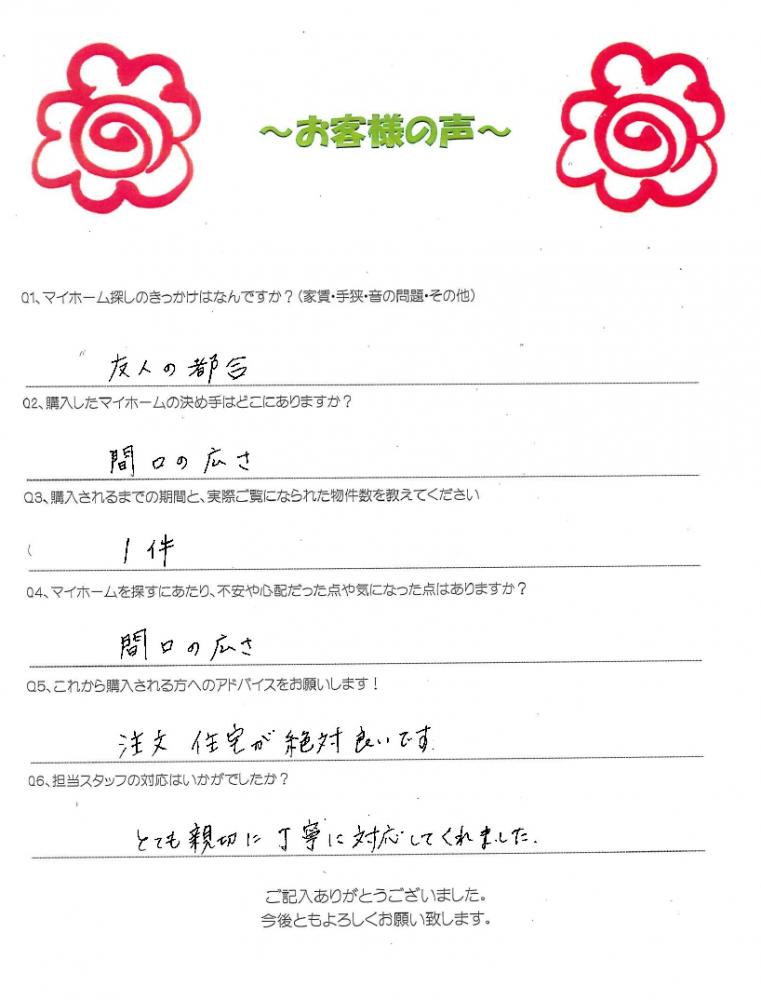 ～お客様の声～
Q1、マイホーム探しのきっかけはなんですか？（家賃・手狭・音の問題・その他）
友人の都合
Q2、購入したマイホームの決め手はどこにありますか？
間口の広さ
Q3、購入されるまでの期間と、実際ご覧になられた物件数を教えてください
1件
Q4、マイホームを探すにあたり、不安や心配だった点や気になった点はありますか？
間口の広さ
Q5、これから購入される方へのアドバイスをお願いします！
注文住宅が絶対良いです
Q6、担当スタッフの対応はいかがでしたか？
とても親切に丁寧に対応してくれました.
ご記入ありがとうございました。
今後ともよろしくお願い致します。